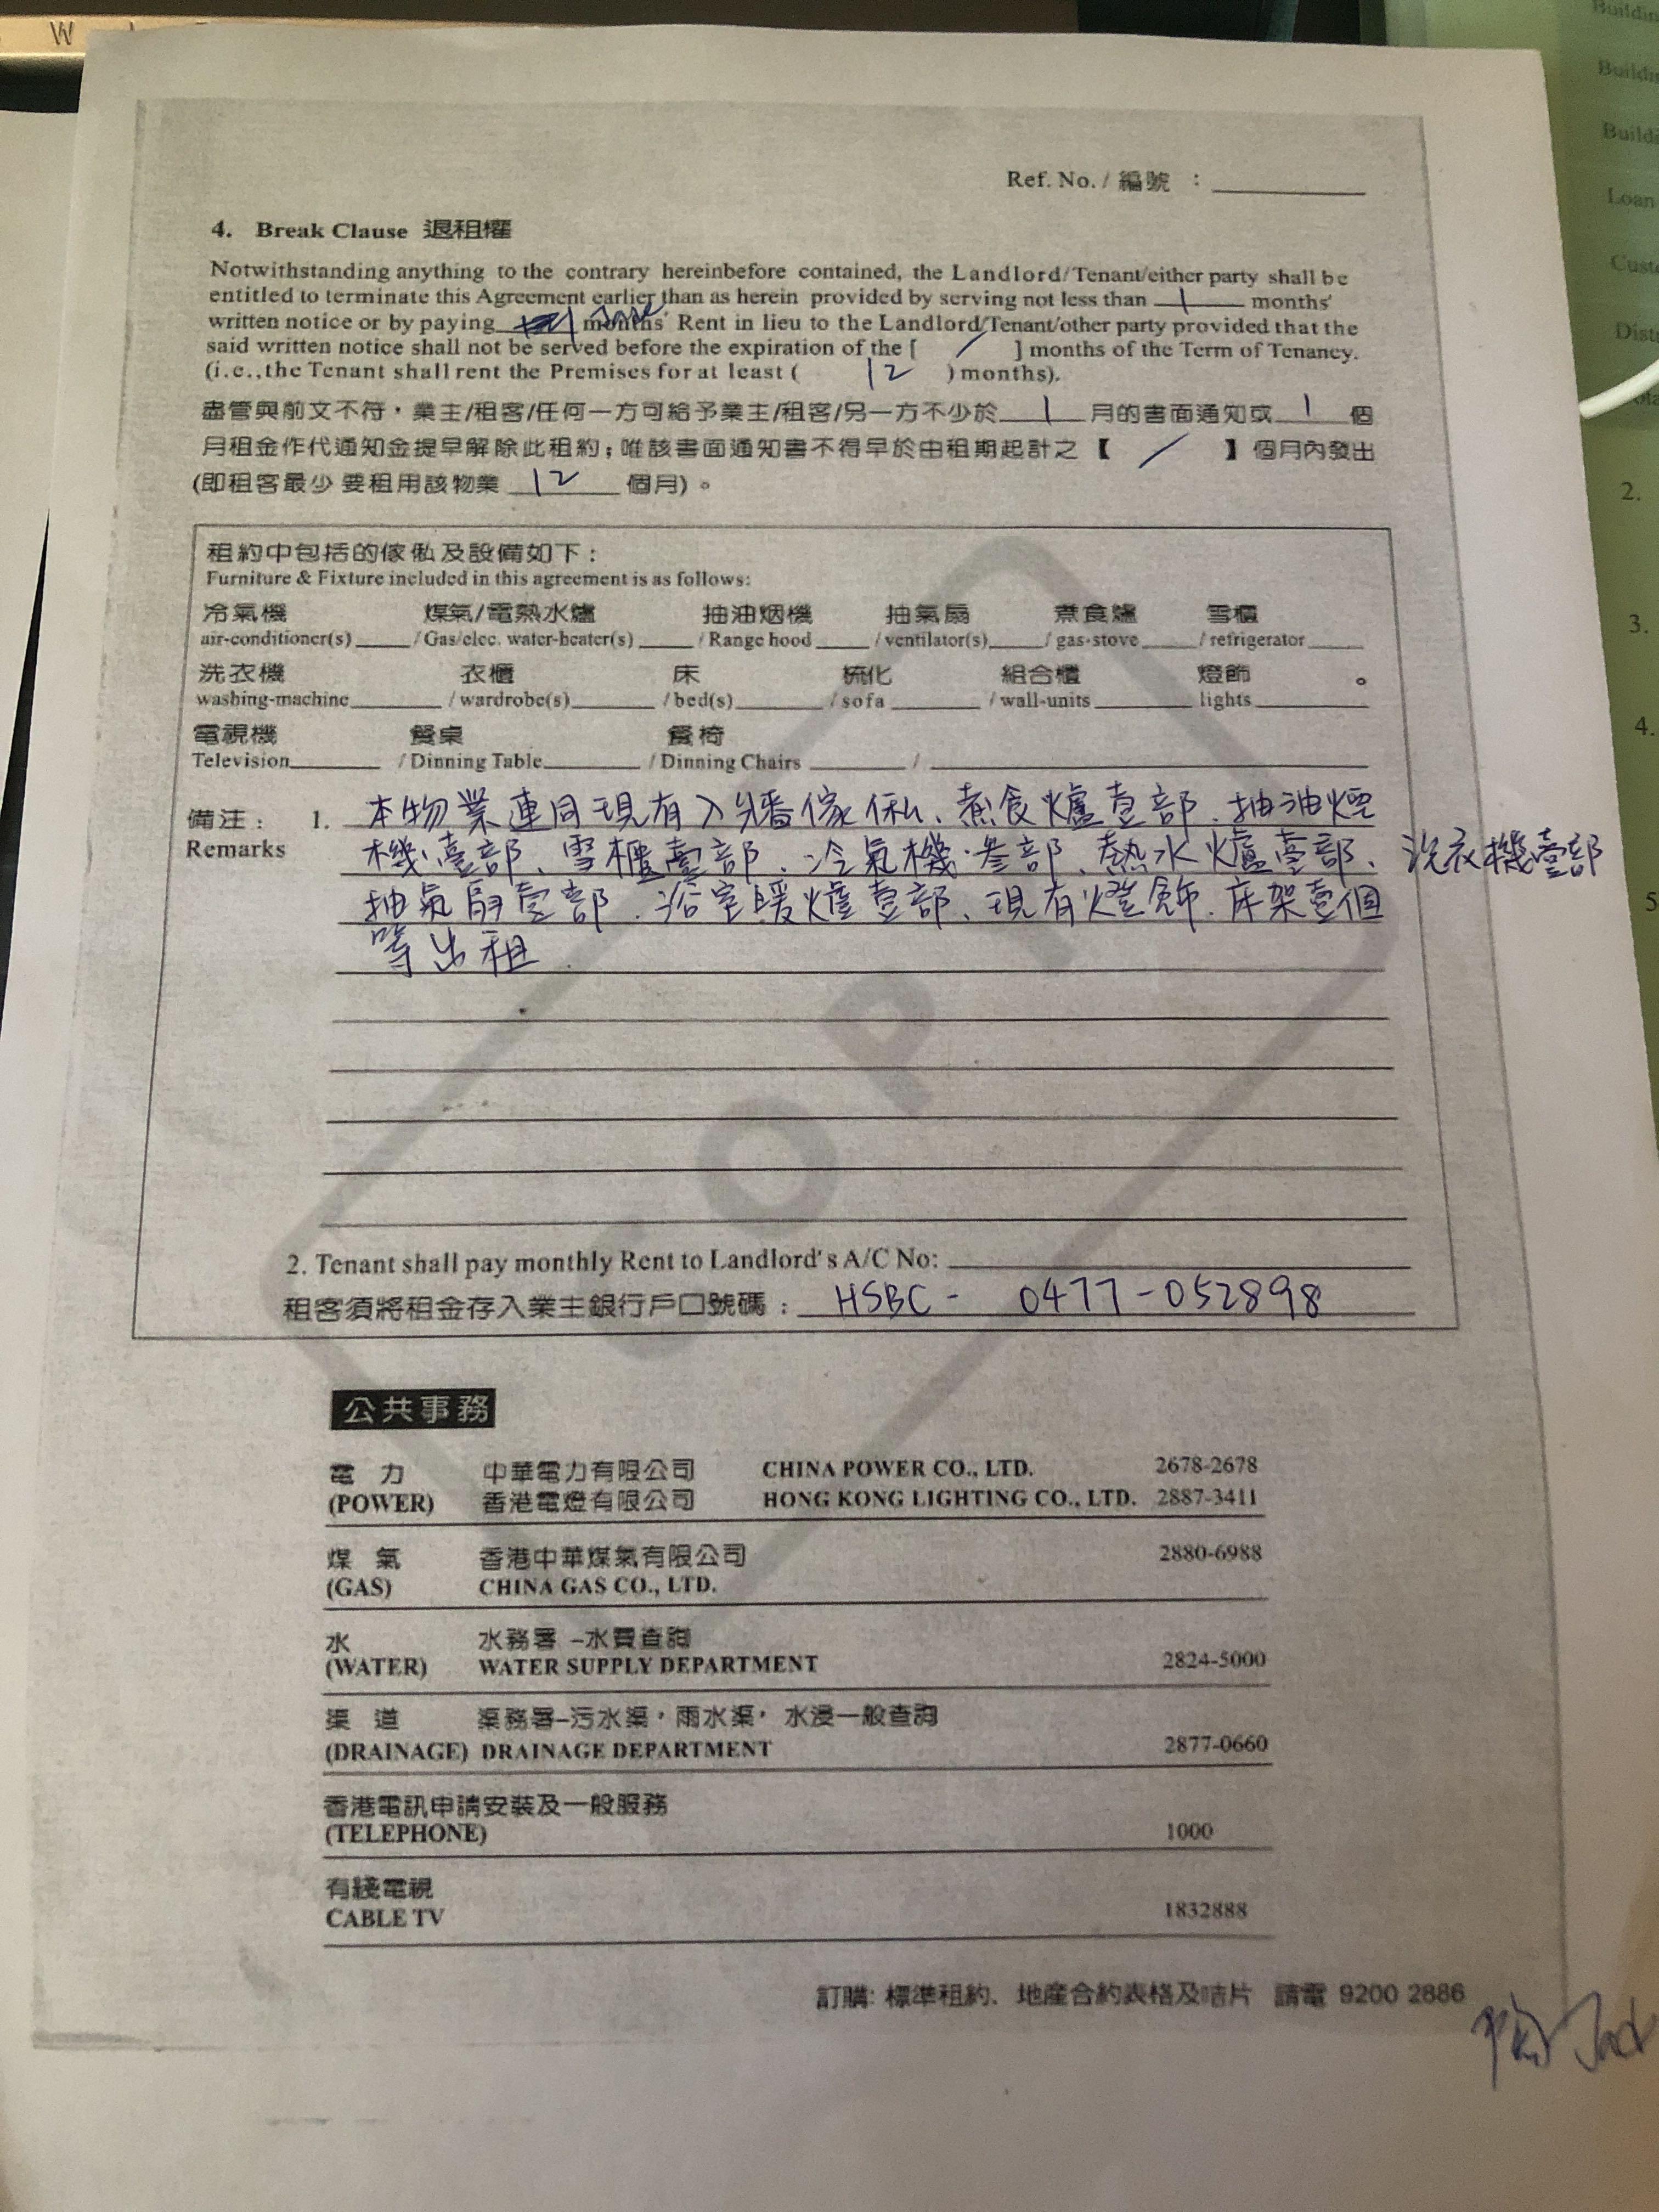 W
Ref. No. / 編號 ：
4. Break Clause 退租權
Notwithstanding anything to the contrary hereinbefore contained, the Landlord/Tenant/either party shall be
entitled to terminate this Agreement earlier than as herein provided by serving not less than 1 months'
written notice or by paying 1 months' Rent in lieu to the Landlord/Tenant/other party provided that the
said written notice shall not be served before the expiration of the [ / ] months of the Term of Tenancy.
(i.e.,the Tenant shall rent the Premises for at least ( 12 ) months).
盡管與前文不符，業主/租客/任何一方可給予業主/租客/另一方不少於 1 月的書面通知或 1 個
月租金作代通知金提早解除此租約；唯該書面通知書不得早於由租期起計之【 / 】個月內發出
(即租客最少要租用該物業 12 個月)。
租約中包括的傢俬及設備如下：
Furniture & Fixture included in this agreement is as follows:
冷氣機 煤氣/電熱水爐 抽油烟機 抽氣扇 煮食爐 雪櫃
air-conditioner(s) / Gas/elec. water-heater(s) / Range hood / ventilator(s) / gas-stove / refrigerator
洗衣機 衣櫃 床 梳化 組合櫃 燈飾 。
washing-machine / wardrobe(s) / bed(s) / sofa / wall-units lights
電視機 餐桌 餐椅
Television / Dinning Table / Dinning Chairs /
備注： 1. 本物業連同現有入墻傢俬、煮食爐壹部、抽油煙
Remarks 機壹部、雪櫃壹部、冷氣機叁部、熱水爐壹部、洗衣機壹部
抽氣扇壹部、浴室暖爐壹部、現有燈飾、床架壹個
等出租.
2. Tenant shall pay monthly Rent to Landlord's A/C No:
租客須將租金存入業主銀行戶口號碼： HSBC - 0477-052898
公共事務
電 力 中華電力有限公司 CHINA POWER CO., LTD. 2678-2678
(POWER) 香港電燈有限公司 HONG KONG LIGHTING CO., LTD. 2887-3411
煤 氣 香港中華煤氣有限公司 2880-6988
(GAS) CHINA GAS CO., LTD.
水 水務署 –水費查詢
(WATER) WATER SUPPLY DEPARTMENT 2824-5000
渠 道 渠務署–污水渠，雨水渠， 水浸一般查詢
(DRAINAGE) DRAINAGE DEPARTMENT 2877-0660
香港電訊申請安裝及一般服務
(TELEPHONE) 1000
有綫電視
CABLE TV 1832888
訂購: 標準租約、地產合約表格及咭片 請電 9200 2886
COPY
Buildin
Buildi
Build
Loan
Custo
Dist
2.
3.
4.
5